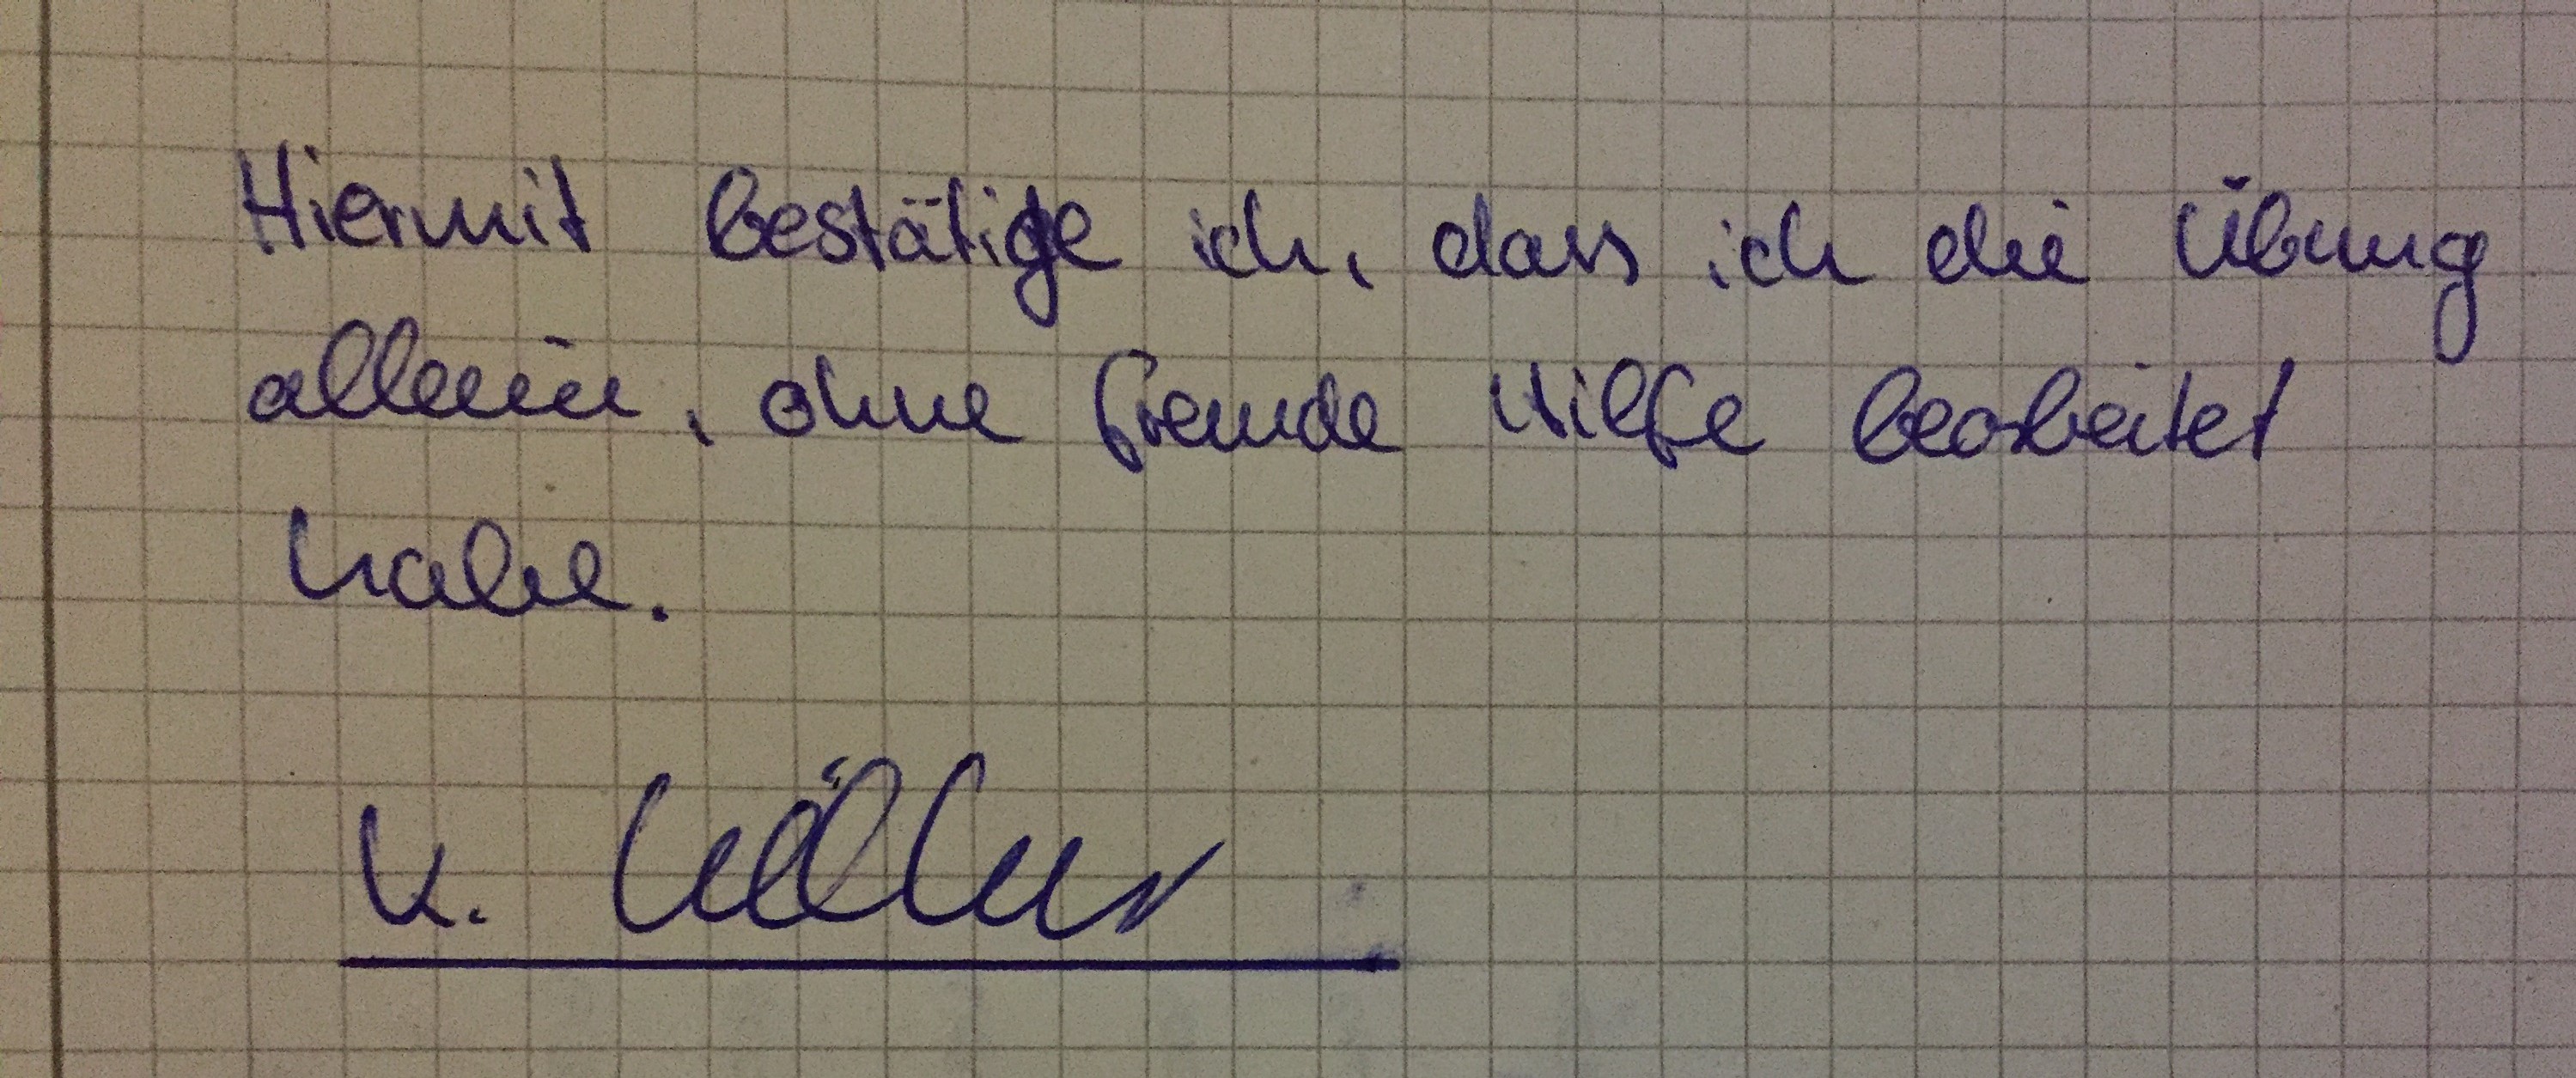 Hiermit bestätige ich, dass ich die Übung
allein, ohne fremde Hilfe bearbeitet
habe.
K.